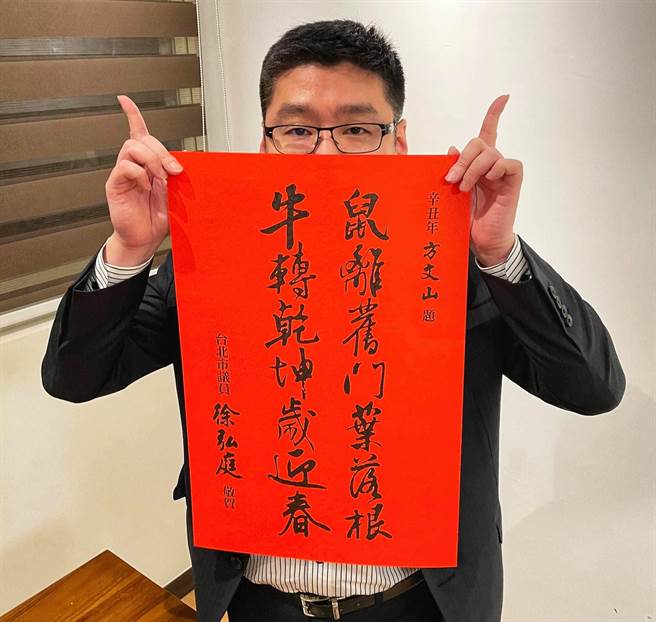 辛丑年 方文山 題
鼠離舊門葉落根
牛轉乾坤歲迎春
台北市議員 徐弘庭 敬賀